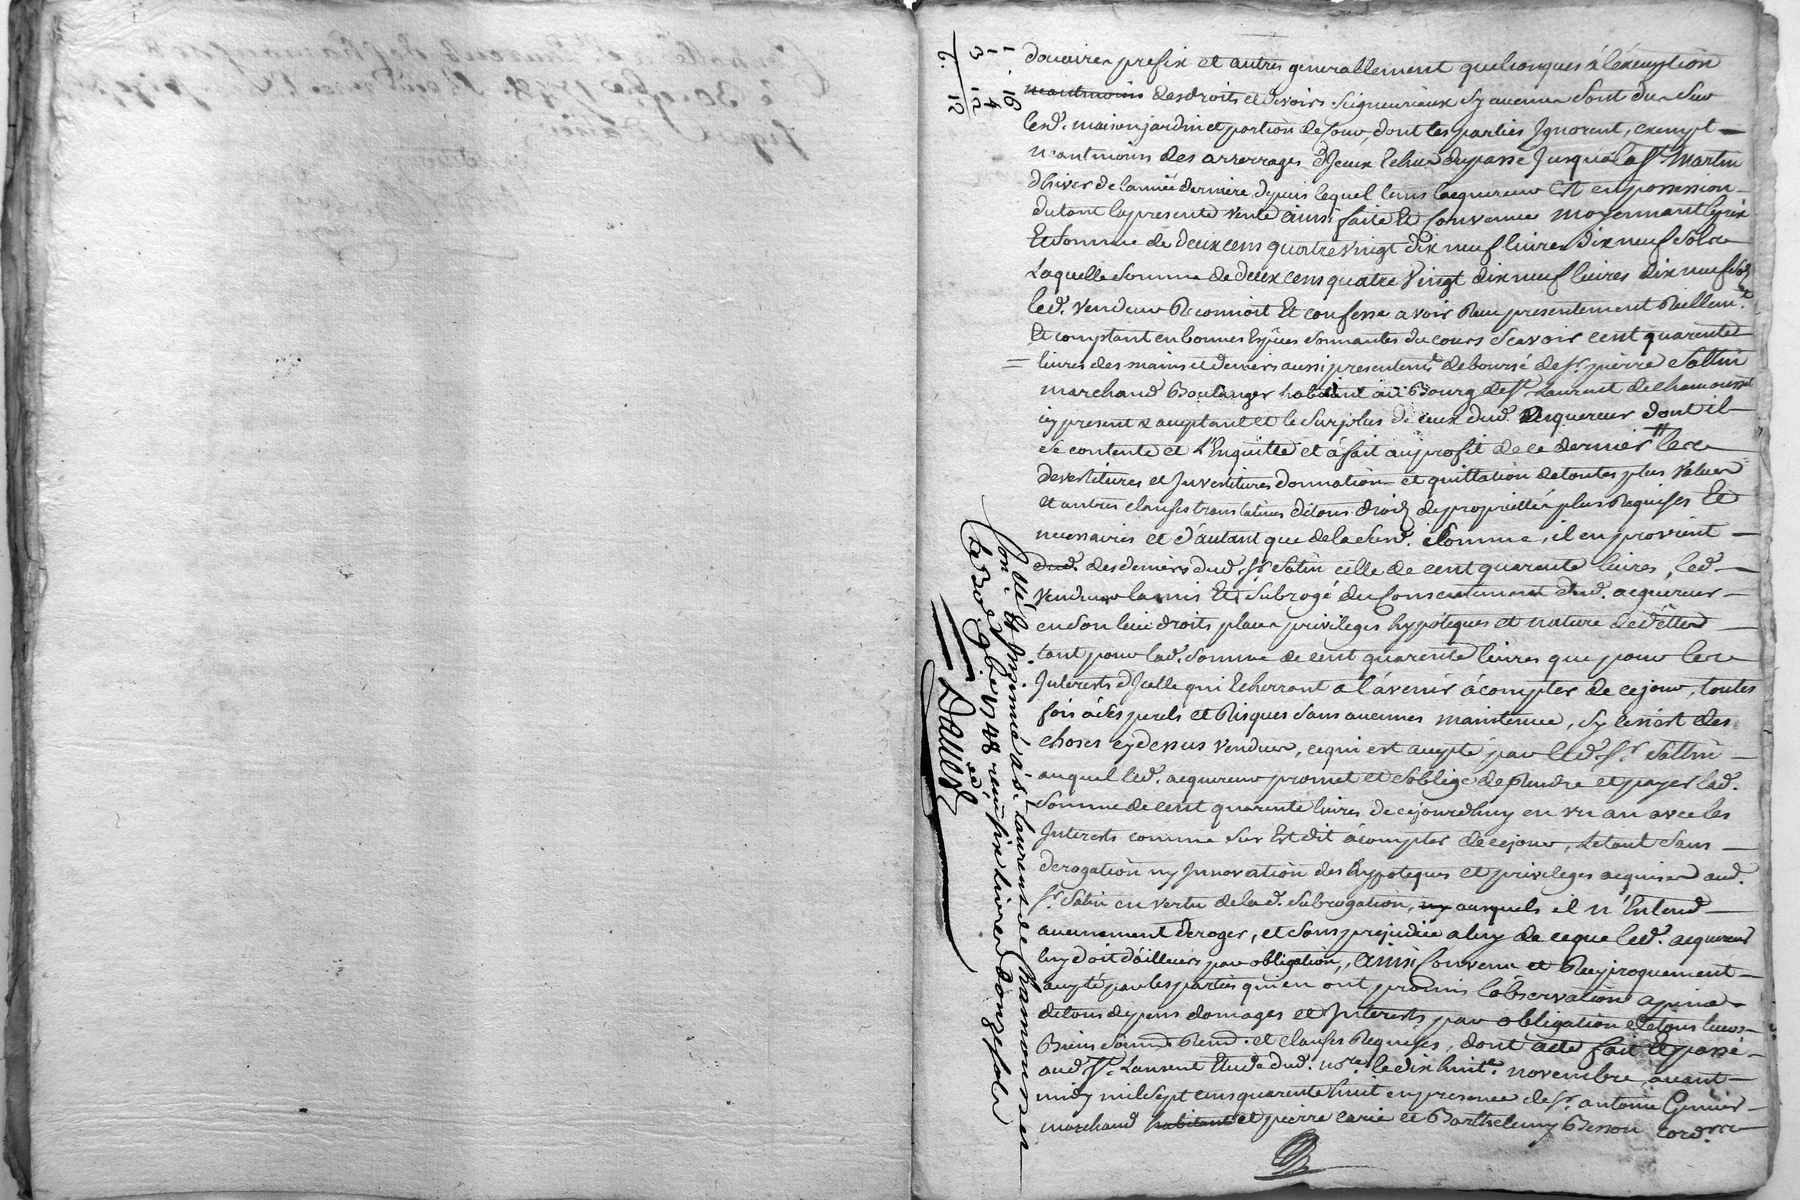 1 . 16
1 4
3 . 12
6 . 12
douaires prefix et autres generallement quelconques a l'exception
neantmoins des droits et devoirs seigneuriaux sy aucuns sont dus sur
lesd. maison jardin et portion de cour, dont les parties Ignorent, exempt
neantmoins des arrerages d'Jceux Echus du passé Jusqu'a la st martin
d'hiver de l'année derniere depuis lequel tems l'acquereur est en possession
du tout la presente vente ainsi faite Et Convenue moyennant le prix
Et somme de deux cens quatre vingt dix neuf livres dix neuf sols
Laquelle somme de deux cens quatre Vingt dix neuf livres dix neuf sols
led. vendeur Reconnoit Et confesse avoir Reçu presentement Réellemt
Et comptant en bonnes Especes sonnantes du cours scavoir cent quarente
livres des mains et deniers aussi presentemt deboursé de sr. pierre Sattin
marchand Boulanger habitant au Bourg de st Laurent de chamousset
icy present & acceptant et le surplus de ceux dud. acquereur dont il
se contente et l'Enquitte et a fait au profit de ce dernier les
devestitures et Jnvestitures donnation et quittation de toutes plus values
et autres clauses translatives de tous droits de proprietté plus Requises Et
necessaires et d'autant que de la susd. somme, il en provient
dud. des deniers dud. sr Satin celle de cent quarente livres, led.
vendeur la mis Et subrogé du Consentement dud. acquereur
en son lieu droits place privileges hypoteques et nature de dette
tant pour lad. somme de cent quarente livres que pour les
Jnterests d'Jcelle qui Echerront a l'avenir a compter de ce jour, toutes
fois a ses perils et Risques sans aucunes maintenue, sy ce n'est des
choses cy dessus vendues, ce qui est accepté par led. sr. Sattin
auquel led. acquereur promet et s'oblige de Rendre et payer lad.
somme de cent quarente livres de ce jourdhuy en un an avec les
Jnterests comme sus Est dit a compter de ce jour, Le tout sans
derogation ny Jnnovation des hypoteques et privileges acquises aud.
sr. Satin en vertu de lad. subrogation, ny ausquels il n'Entend
aucunement deroger, et sans prejudice a luy de ce que led. acquereur
luy doit d'ailleurs par obligation, ainsi Convenu et Reciproquement
accepté par les parties qui en ont promis l'observation a peine
de tous depens domages et Jnterests par obligation de tous leurs
Biens soumis. Rend. et clauses Requises, dont acte fait Et passé
aud st. Laurent Etude dud. nore. le dix huite. novembre avant
midy mil sept cens quarente huit en presence de sr. antoine
marchand habitant et pierre carie et Barthelemy Besson cord.
Conllé Et Jnsinué a st. Laurent de Chamousset
le 30e. 9bre 1748 reçu six livres douze sols